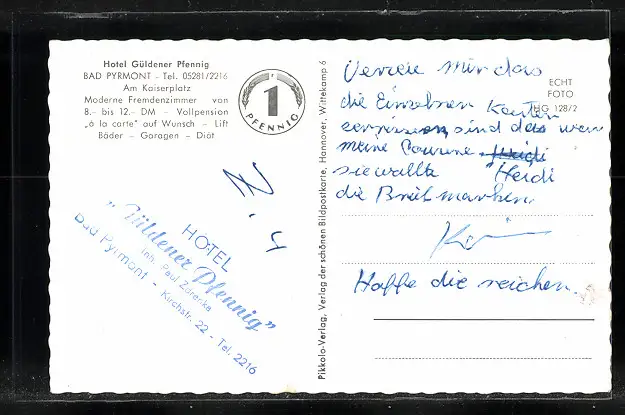 Hotel Güldener Pfennig
BAD PYRMONT - Tel. 05281/2216
Am Kaiserplatz
Moderne Fremdenzimmer von
8.- bis 12.- DM - Vollpension
„à la carte" auf Wunsch - Lift
Bäder - Garagen - Diät
1
PFENNIG
HOTEL
„Güldener Pfennig"
Inh. Paul
Bad Pyrmont - Kirchstr. 22 - Tel. 2216
Pikkolo-Verlag, Verlag der schönen Bildpostkarte, Hannover, Wittekamp 6
ECHT
FOTO
HG 128/2
mir das
die Einzelnen Karten
sind das war
meine
sie wollte Heidi
die Briefmarken.
Hoffe die reichen.